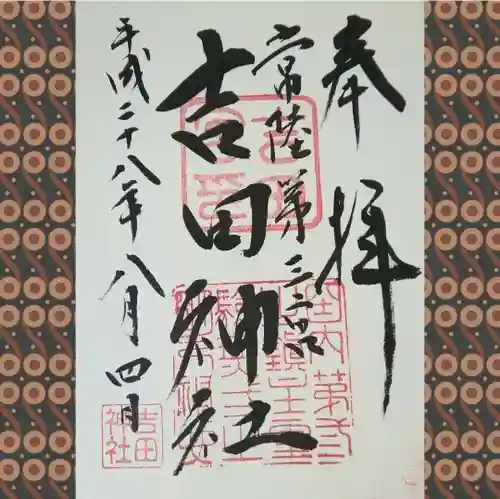 奉拝
常陸第三宮
吉田神社
平成二十八年八月四日
吉田
神社